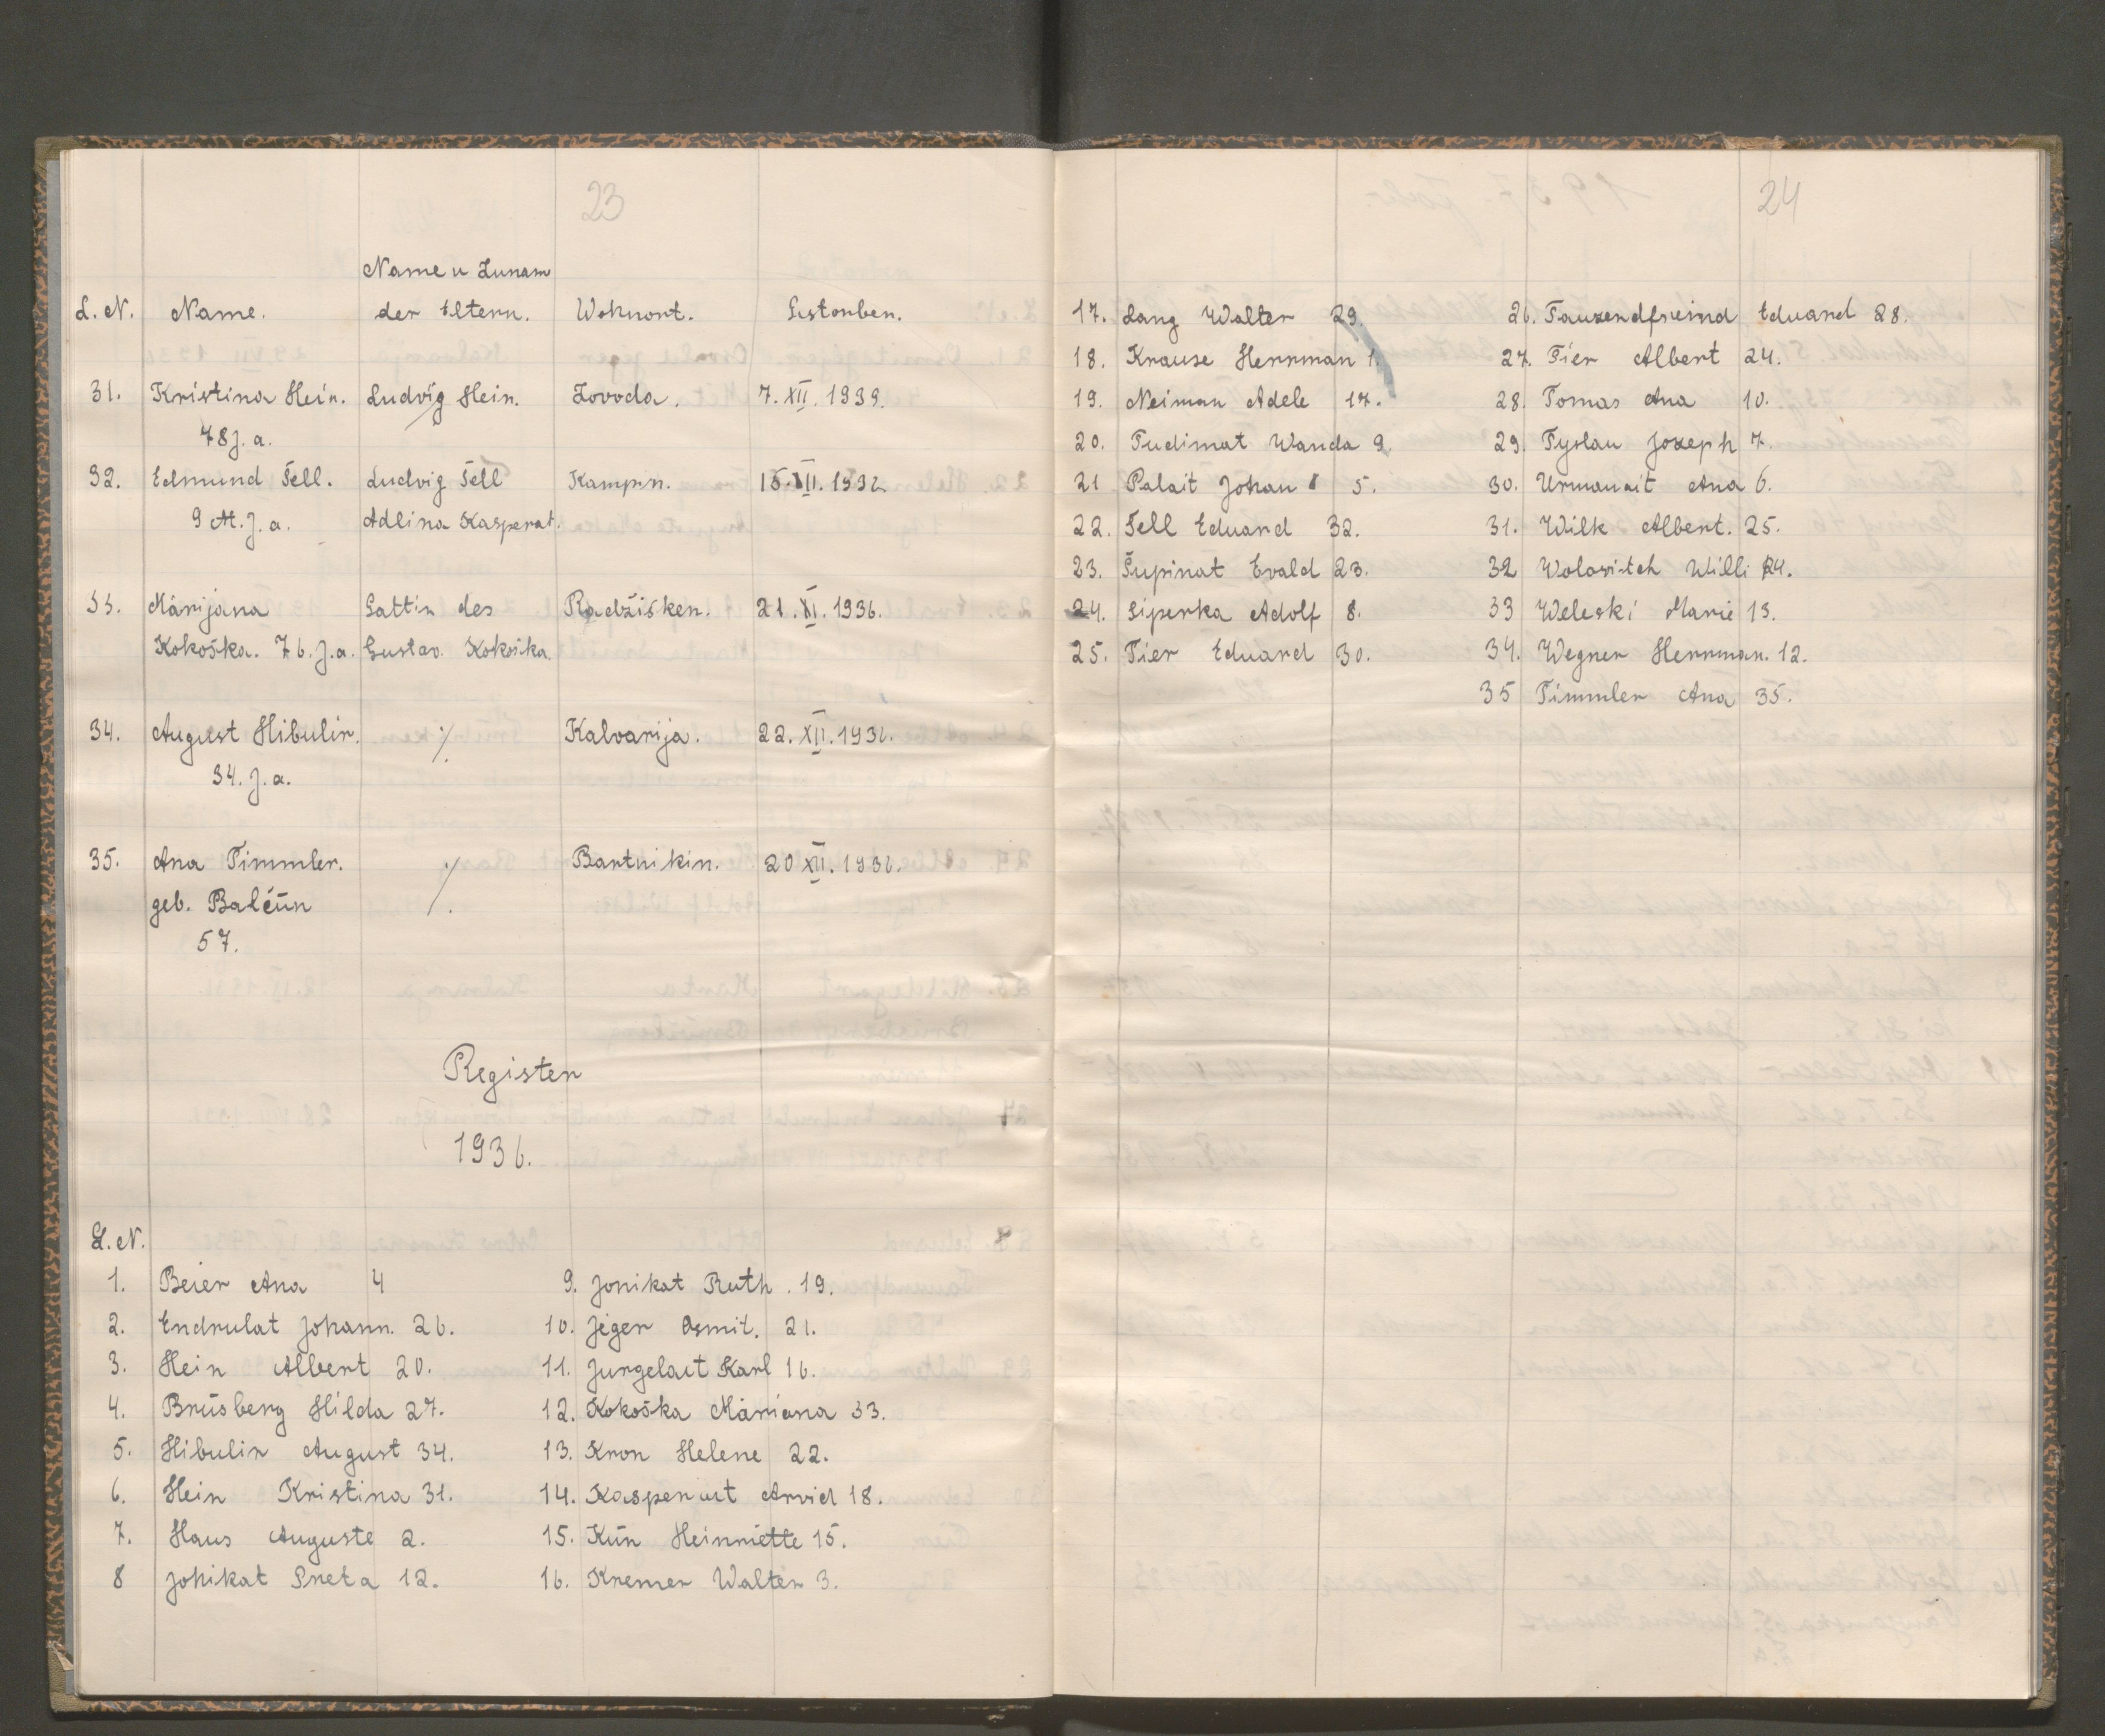 23
Name u Zunam
L. N. Name. der Eltern. Wohnort. Gestorben.
31. Kristina Hein. Ludvig Hein. Zovoda. 7. XII. 1939.
78 J. a.
32. Edmund Tell. Ludvig Tell Kampin. 15. XII. 1932
9 M. J. a. Adlina Kasperat.
33. Marijana Gattin des Radžisken. 21. XI. 1936.
Kokoška. 76. J. a. Gustav. Kokoška.
34. August Hibulin. ·/. Kalvarija. 22. XII. 1936.
34. J. a.
35. Ana Timmler. ·/. Bartnikin. 20 XII. 1936.
geb. Balčiün
57.
Register
1936.
L. N.
1. Beier Ana 4
2. Endrulat Johann. 26.
3. Hein Albert 20.
4. Brüsberg Hilda 27.
5. Hibulin August 34.
6. Hein Kristina 31.
7. Haus Auguste 2.
8 Johikat Greta 12.
9. Jonikat Ruth. 19.
10. Jeger Osmit. 21.
11. Jurgelait Karl 16.
12. Kokoška Mariana 33.
13. Kron Helene 22.
14. Kasperait Arvid 18.
15. Kün Heinriette 15.
16. Kremer Walter 3.
24
17. Lang Walter 29.
18. Krause Herrman 1.
19. Neiman Adele 17.
20. Pudimat Wanda 9.
21 Palait Johan 5.
22. Tell Eduard 32.
23. Šupinat Evald 23.
24. Siperka Adolf 8.
25. Tier Eduard 30.
26. Tauzendfreind Eduard 28.
27. Tier Albert 24.
28. Tomas Ana 10.
29. Tyslau Jozeph 7.
30. Urmanait Ana 6.
31. Wilk Albert. 25.
32 Wolasitch Willi 14.
33 Weleski Marie 13.
34. Wegner Herrman. 12.
35 Timmler Ana 35.